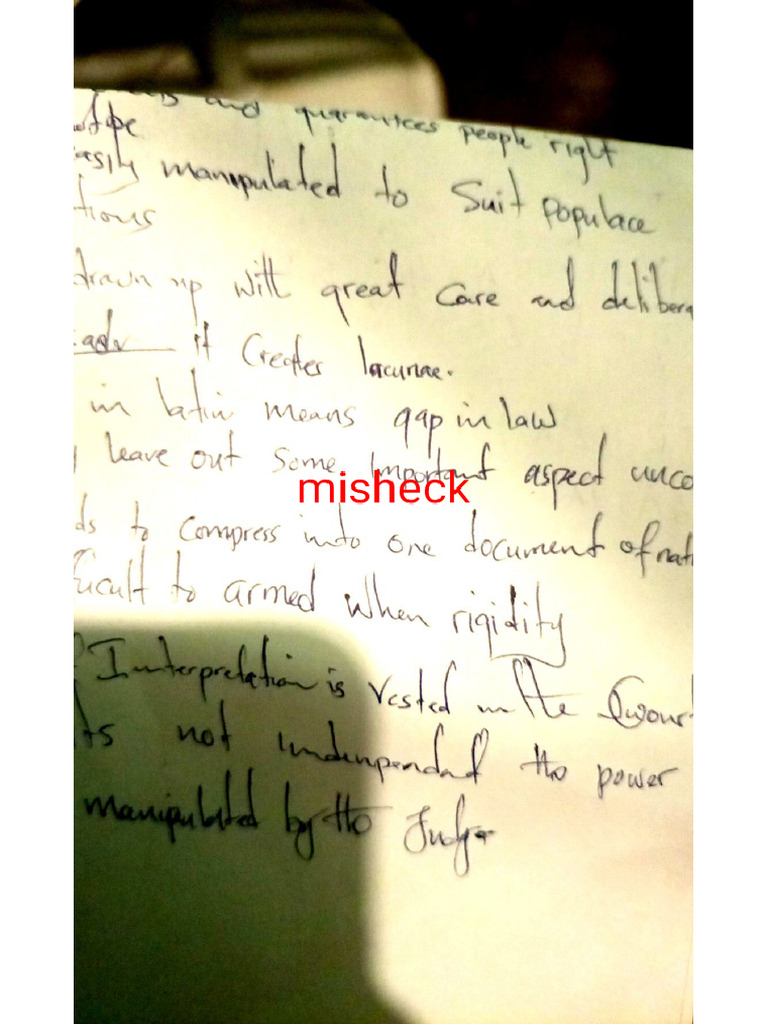 and guarantees people right
manipulated to Suit populace
tions
drawn up with great care and delibera
adv it Creates lacunae.
in latin means gap in law
leave out some important aspect unco
misheck
ds to compress into one document of nat
ficult to armed when rigidity
Interpretation is Vested in the
ts not indenpendad the power
manipulated by the Judge